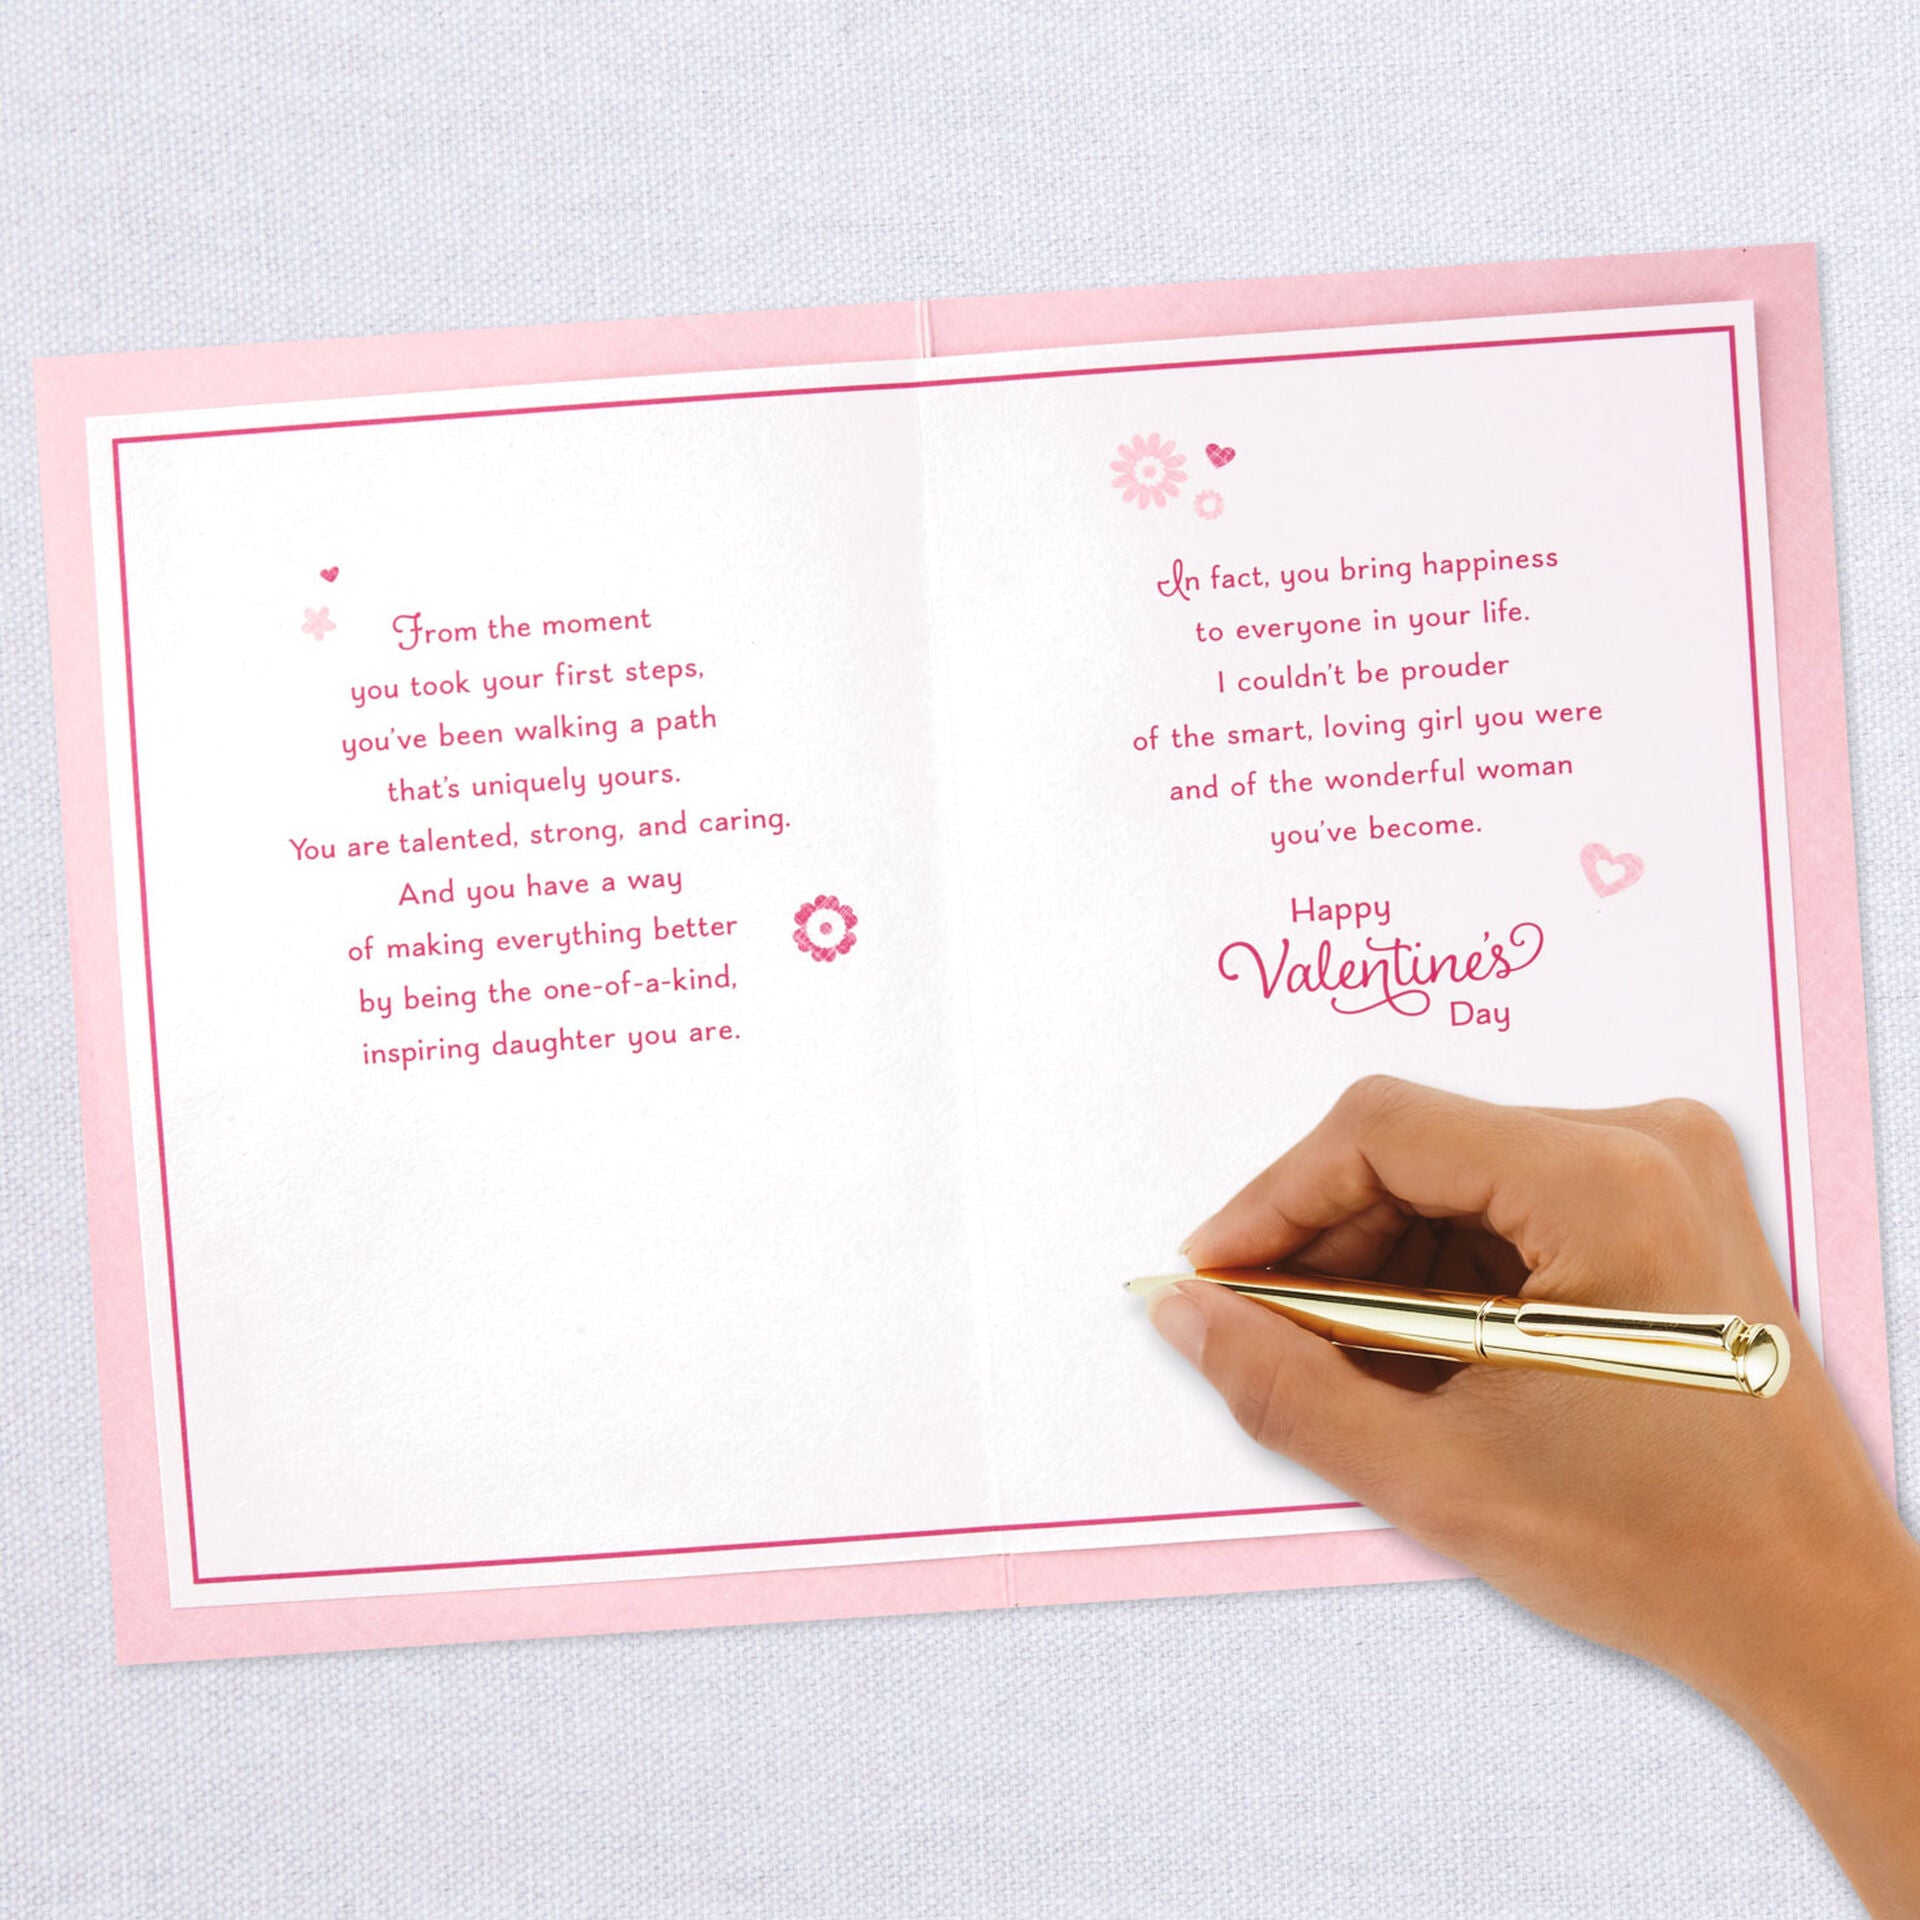 From the moment
you took your first steps,
you've been walking a path
that's uniquely yours.
You are talented, strong, and caring.
And you have a way
of making everything better
by being the one-of-a-kind,
inspiring daughter you are.
In fact, you bring happiness
to everyone in your life.
I couldn't be prouder
of the smart, loving girl you were
and of the wonderful woman
you've become.
Happy
Valentine's
Day